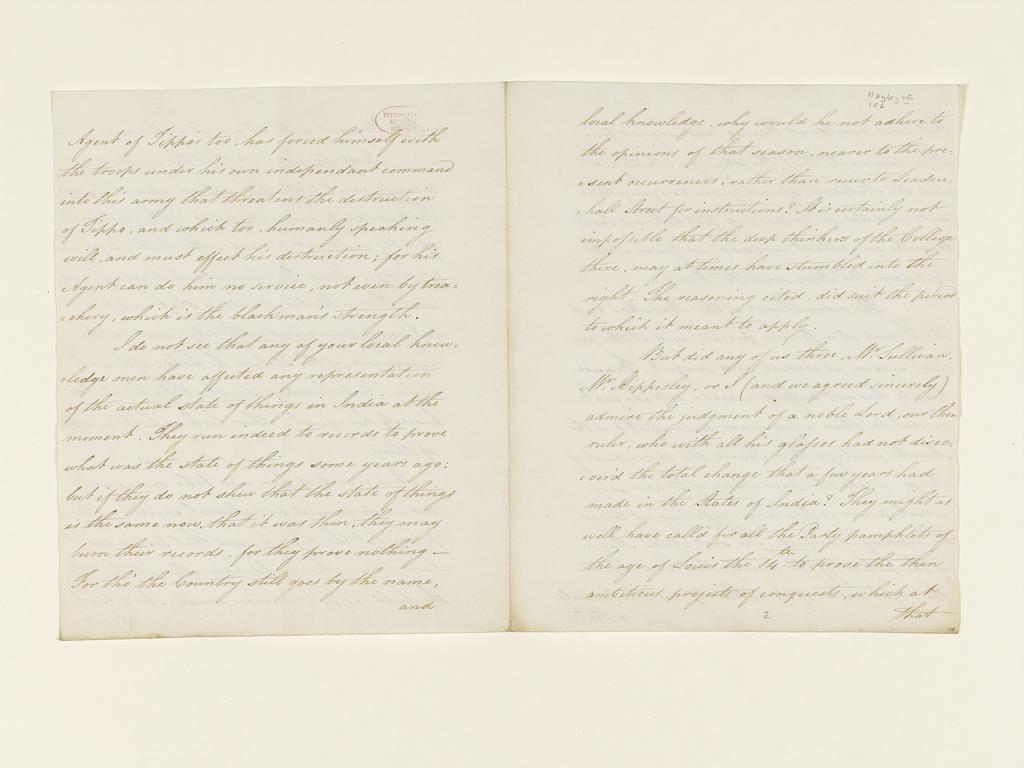 Agent of Tippo's too, has forced himself with
the troops under his own independant command
into this army that threatens the destruction
of Tippo, and which too, humanly speaking
will, and must effect his destruction; for his
Agent can do him no service, not even by trea=
=chery, which is the blackman's strength.
I do not see that any of your local know=
=ledge men have affected any representation
of the actual state of things in India at the
moment. They run indeed to records to prove
what was the state of things some years ago;
but if they do not shew that the state of things
is the same now, that it was then, they may
burn their records, for they prove nothing —
For tho' the Country still goes by the name,
and
Hayley VIII
106
local knowledge, why would he not adhere to
the opinions of that season, nearer to the pre=
=sent occurrences, rather than recur to Leaden-
-hall Street for instructions? It is certainly not
impossible that the deep thinkers of the College
there, may at times have stumbled into the
right. The reasoning cited, did suit the period
to which it meant to apply.
But did any of us three, Mr. Sullivan,
Mr. Hippesley, or I (and we agreed sincerely)
admire the judgment of a noble Lord, our then
ruler, who with all his glasses had not disco=
=ver'd the total change that a few years had
made in the States of India? They might as
well have call'd for all the Party pamphlets of
the age of Louis the 14th to prove the then
ambitious projects of conquests, which at
2
that